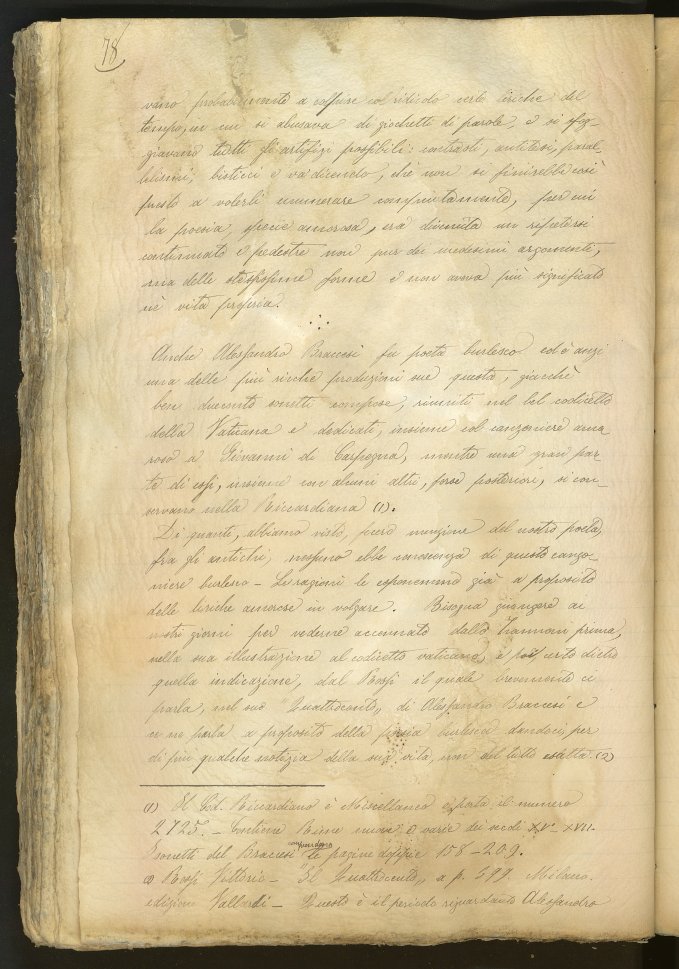 78
vano probabilmente a colpire col ridicolo certe liriche del
tempo, in cui si abusava di giochetti di parole, e si sfog-
giavano tutti gli artifizi possibili: contrasti, antitesi, paral-
lelismi, bisticci e va dicendo, chè non si finirebbe così
presto a volerli enumerare compiutamente, per cui
la poesia, specie amorosa, era divenuta un ripetersi
continuato e pedestre non pur dei medesimi argomenti,
ma delle stessissime forme e non aveva più significato
nè vita propria.
Anche Alessandro Braccesi fu poeta burlesco ed è anzi
una delle più ricche produzioni sue questa, giacchè
ben duecento sonetti compose, riuniti nel bel codicetto
della Vaticana e dedicati, insieme col canzoniere amo-
roso a Giovanni di Carpegna, mentre una gran par-
te di essi, insieme con alcuni altri, forse posteriori, si con-
servano nella Riccardiana (1).
Di quanti, abbiamo visto, fecero menzione del nostro poeta,
fra gli antichi nessuno ebbe conoscenza di questo canzo-
niere burlesco - Le ragioni le esponemmo già a proposito
delle liriche amorose in volgare. Bisogna giungere ai
nostri giorni per vederne accennato dallo Zannoni prima,
nella sua illustrazione al codicetto vaticano, e poi, certo dietro
quella indicazione, dal Rossi il quale brevemente ci
parla, nel suo "Quattrocento, di Alessandro Braccesi e
ce ne parla a proposito della poesia burlesca dandoci per
di più qualche notizia della sua vita, non del tutto esatta. (2)
(1) Il Cod. Riccardiano è Miscellaneo e porta il numero
2725. - Contiene Rime nuove e varie dei secoli XV - XVII.
I sonetti del Braccesi comprendono le pagine 158-209.
(2) Rossi Vittorio - "Il Quattrocento, a p. Milano.
edizione Vallardi - Questo è il periodo riguardante Alessandro